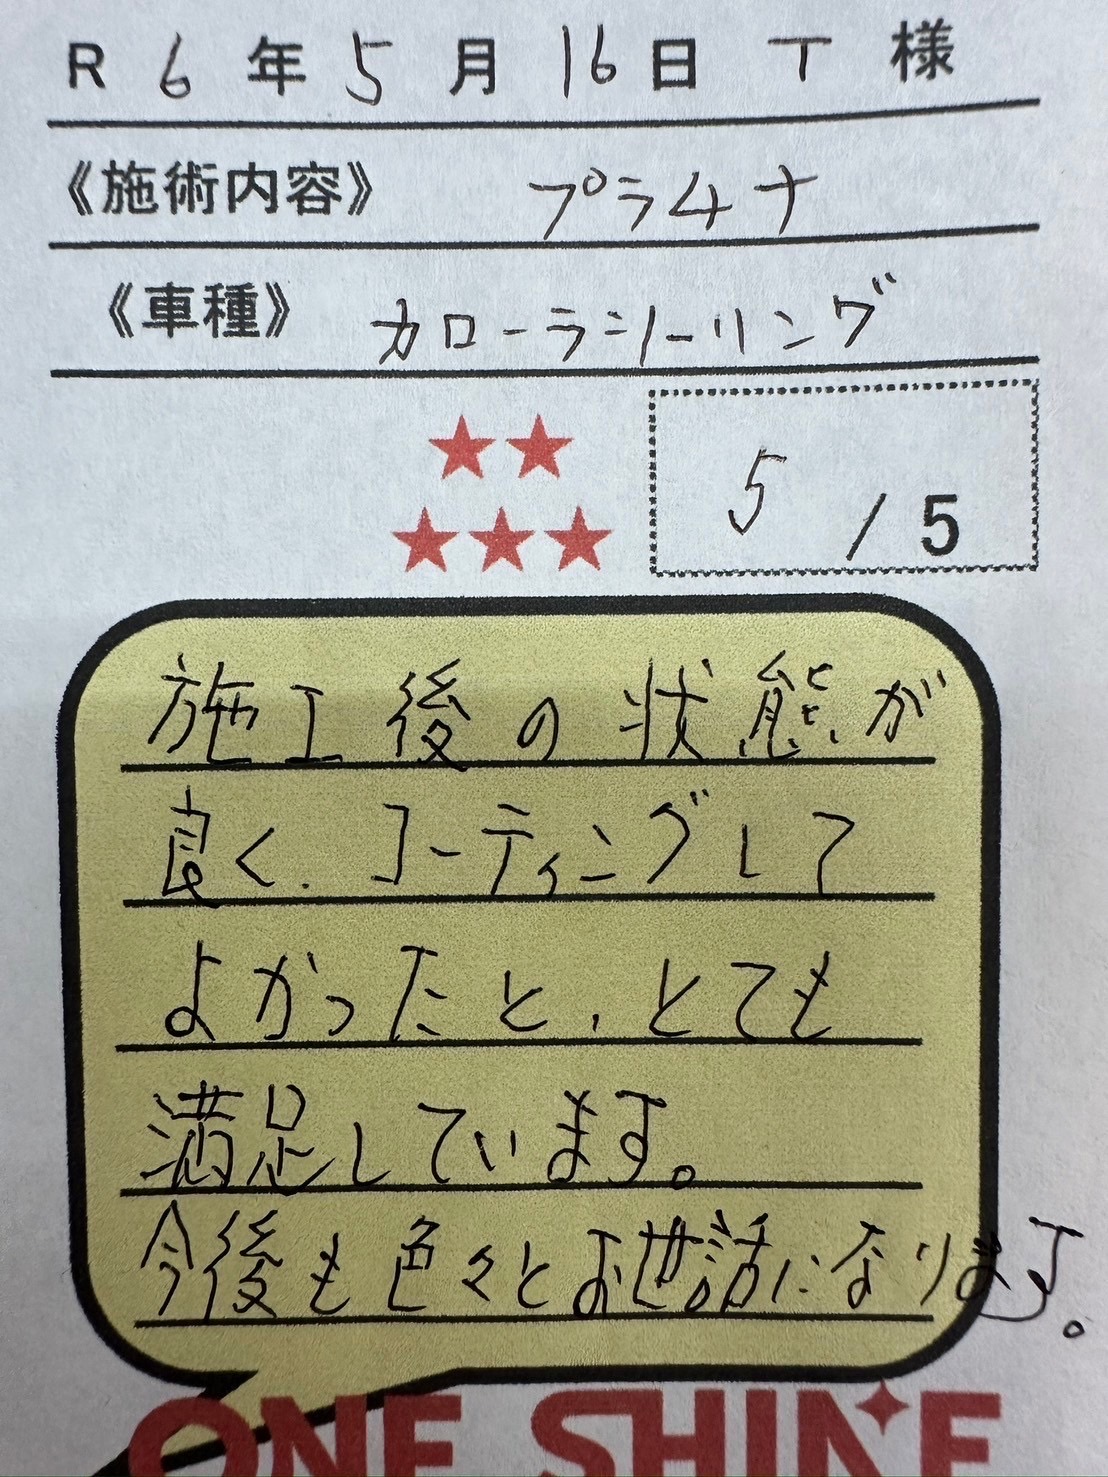 R 6 年 5 月 16 日 T 様
《施術内容》 プラチナ
《車種》 カローラシーリング
★★
★★★
5 / 5
施工後の状態が
良く、コーティングして
よかったと、とても
満足しています。
今後も色々とお世話になります。
ONE SHINE